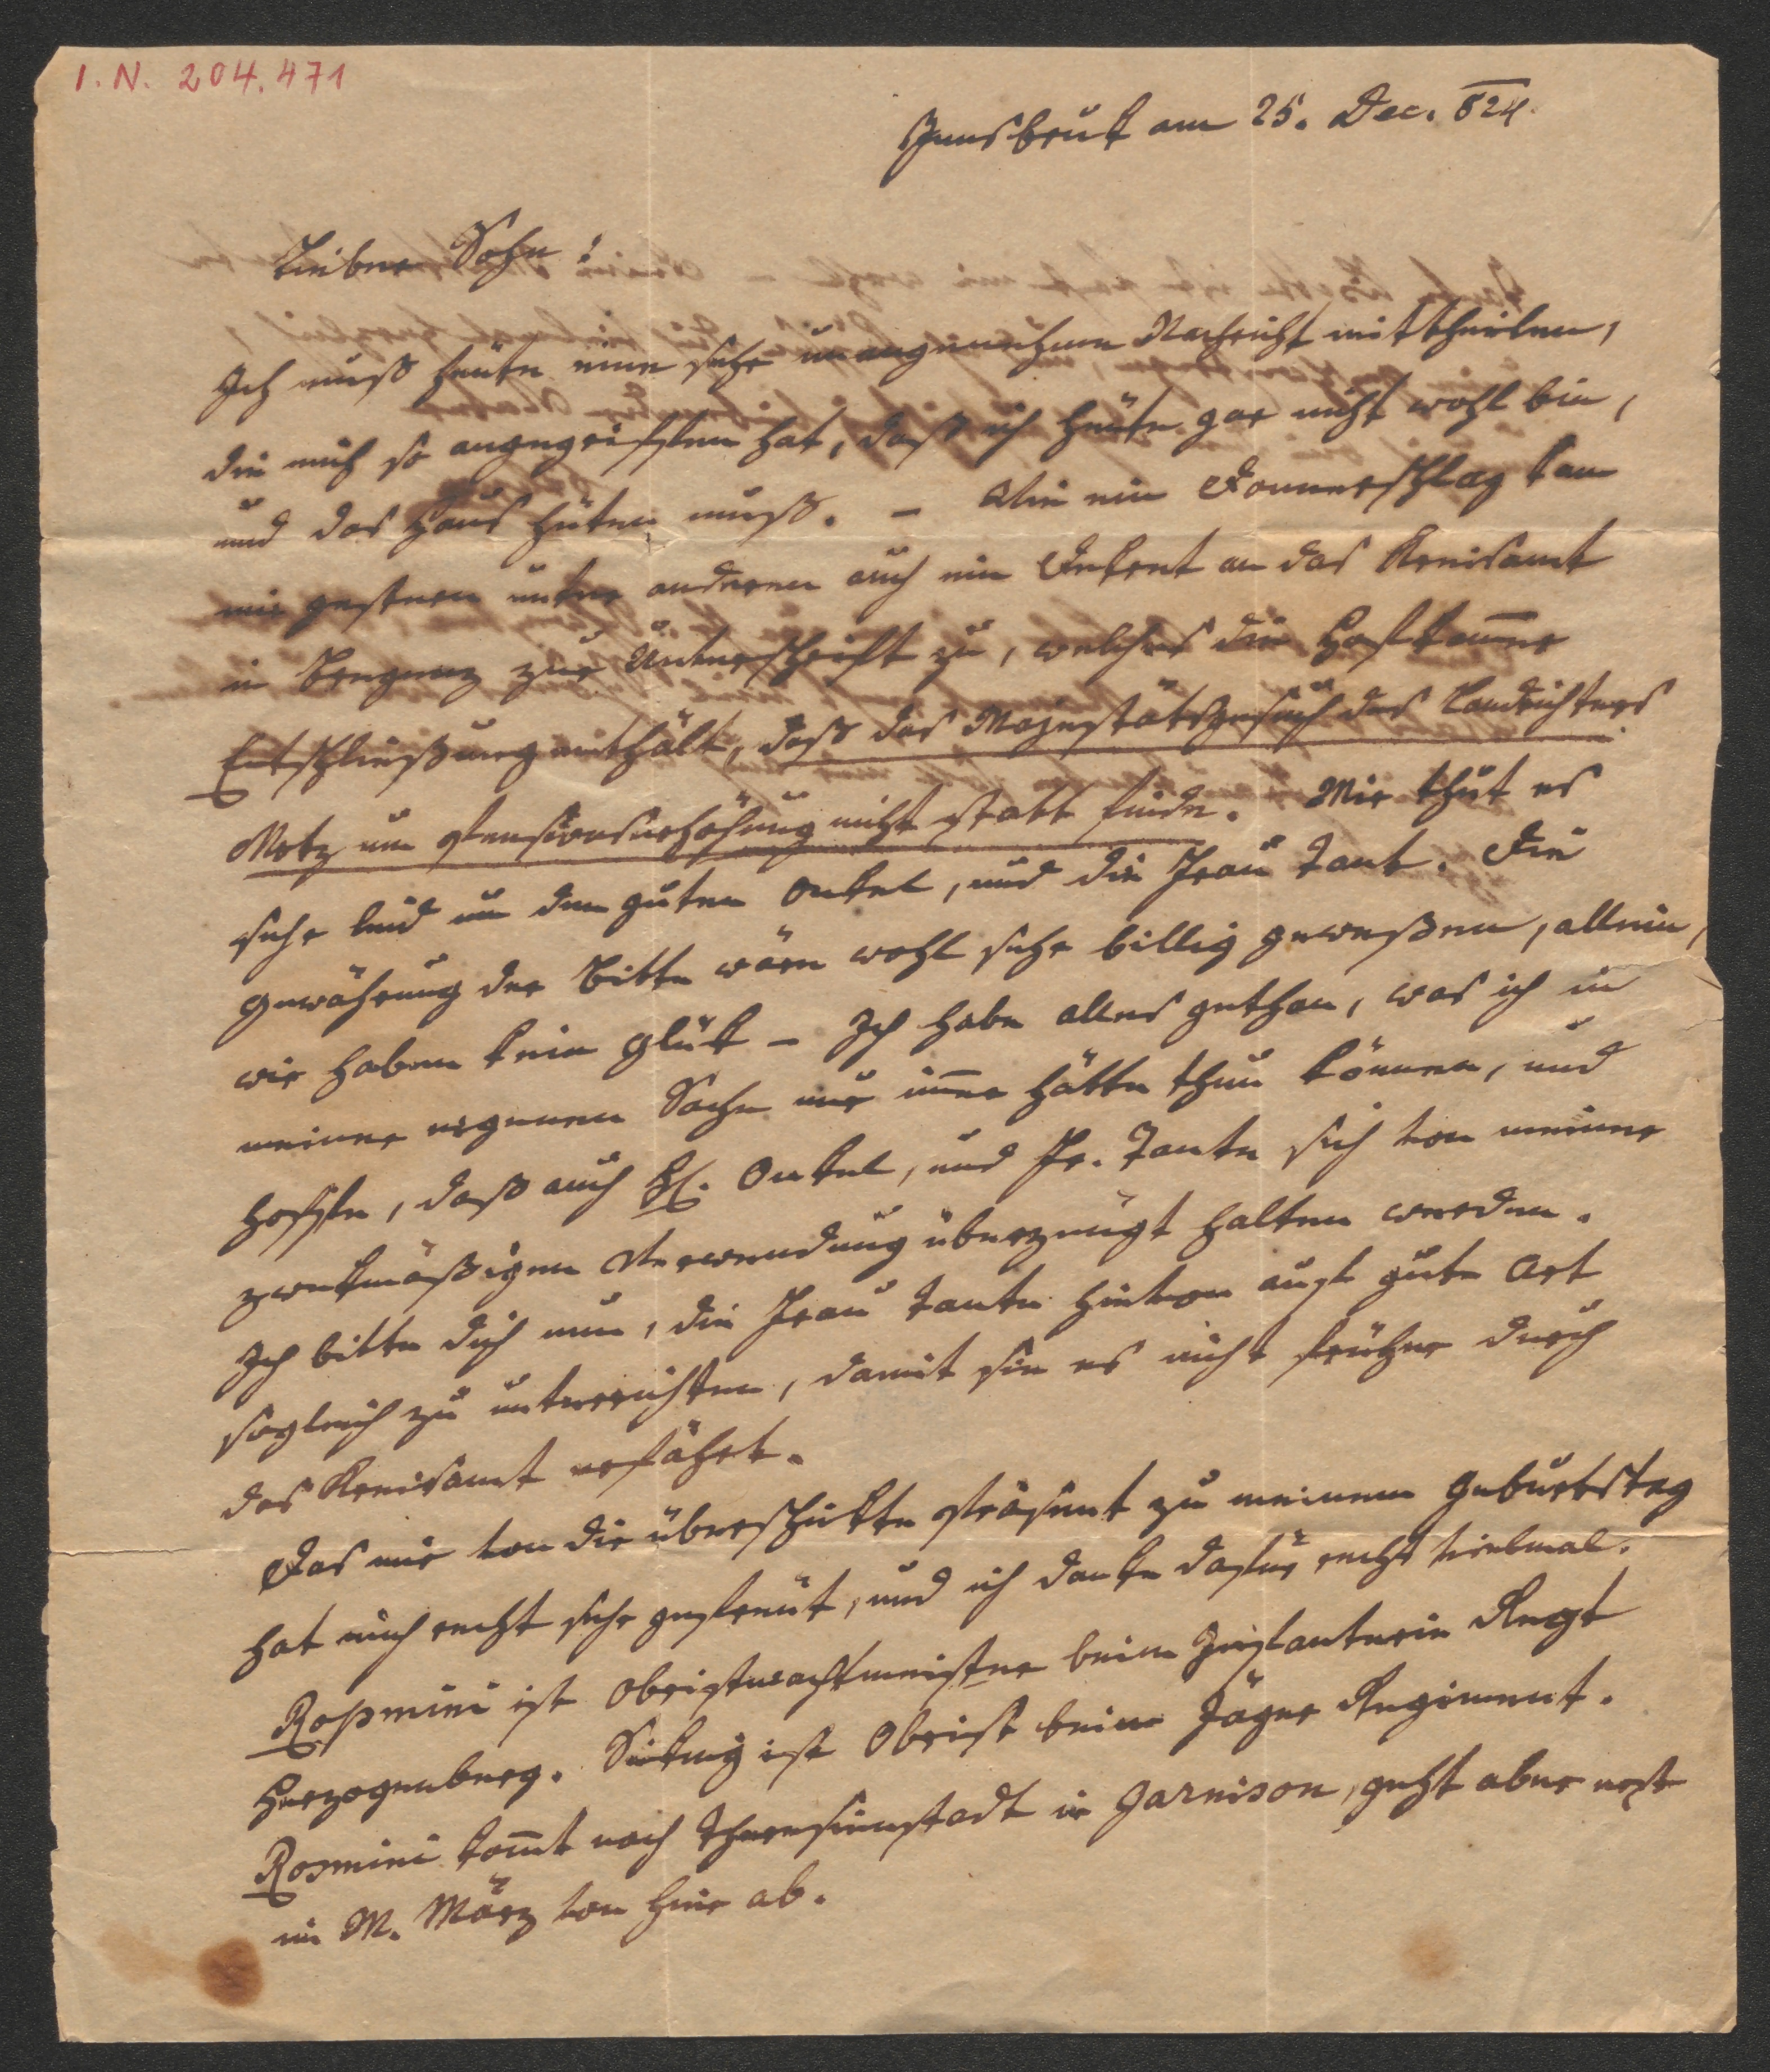 I. N. 204.471
Innsbruk am 25. Dec. 824.
Lieber Sohn!
Ich muß heute eine sehr unangenehme Nachricht mittheilen,
die mich so angegriffen hat, daß ich heute gar nicht wohl bin,
und das Haus hüten muß. – Wie ein Donnerschlag kam
mir gestern unter anderen auch ein Dekret an das Kreisamt
in Bregenz zur Unterschrift zu, welches die Hofkammer
Entschließung enthält, daß das Majestätsgesuch des Landrichters
Motz um Pensionserhöhung nicht statt finde. Mir thut es
sehr leid um den guten Onkel, und die Frau Tant. Die
Gewährung der Bitte wäre wohl sehr billig gewesen, allein,
wir haben kein Glük – Ich habe alles gethan, was ich in
meiner eigenen Sache nur immer hätte thun können, und
hoffe, daß auch H. Onkel, und Fr. Tante sich von meiner
zwekmäßigen Verwendung überzeugt halten werden.
Ich bitte dich nun, die Frau Tante hievon auf gute Art
sogleich zu unterrichten, damit sie es nicht früher durch
das Kreisamt erfährt.
Das mir von dir überschikte Präsent zu meinem Geburtstag
hat mich recht sehr gefreut, und ich danke dafür recht vielmal.
Roßmini ist Obristwachtmeister beim Infanterie Regt
Herzogenberg. ist Obrist beim Jäger Regiment.
Rosmini kommt nach Theresienstadt in Garnison, geht aber erst
im M. März von hier ab.